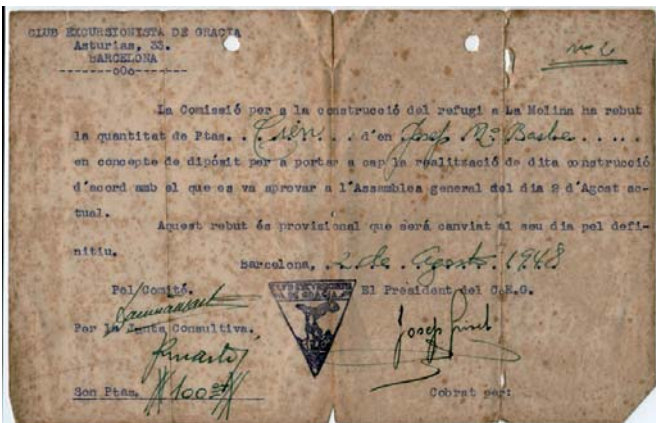 CLUB EXCURSIONISTA DE GRACIA
Asturias, 33.
BARCELONA
-------o0o-------
Nº 2
La Comissió per a la construcció del refugi a La Molina ha rebut
la quantitat de Ptas. . Cien . . d'en Josep Mª . . . . .
en concepte de dipósit per a portar a cap la realització de dita construcció
d'acord amb el que es va aprovar a l'Assamblea general del dia 2 d'Agost ac-
tual.
Aquest rebut és provisional que será canviat al seu dia pel defi-
nitiu.
Barcelona, . 2 de . Agosto . 1948
Pel Comité. El President del C.E.G.
DE GRACIA
Per la Junta Consultiva.
Josep
Son Ptas. 100 Cobrat per: